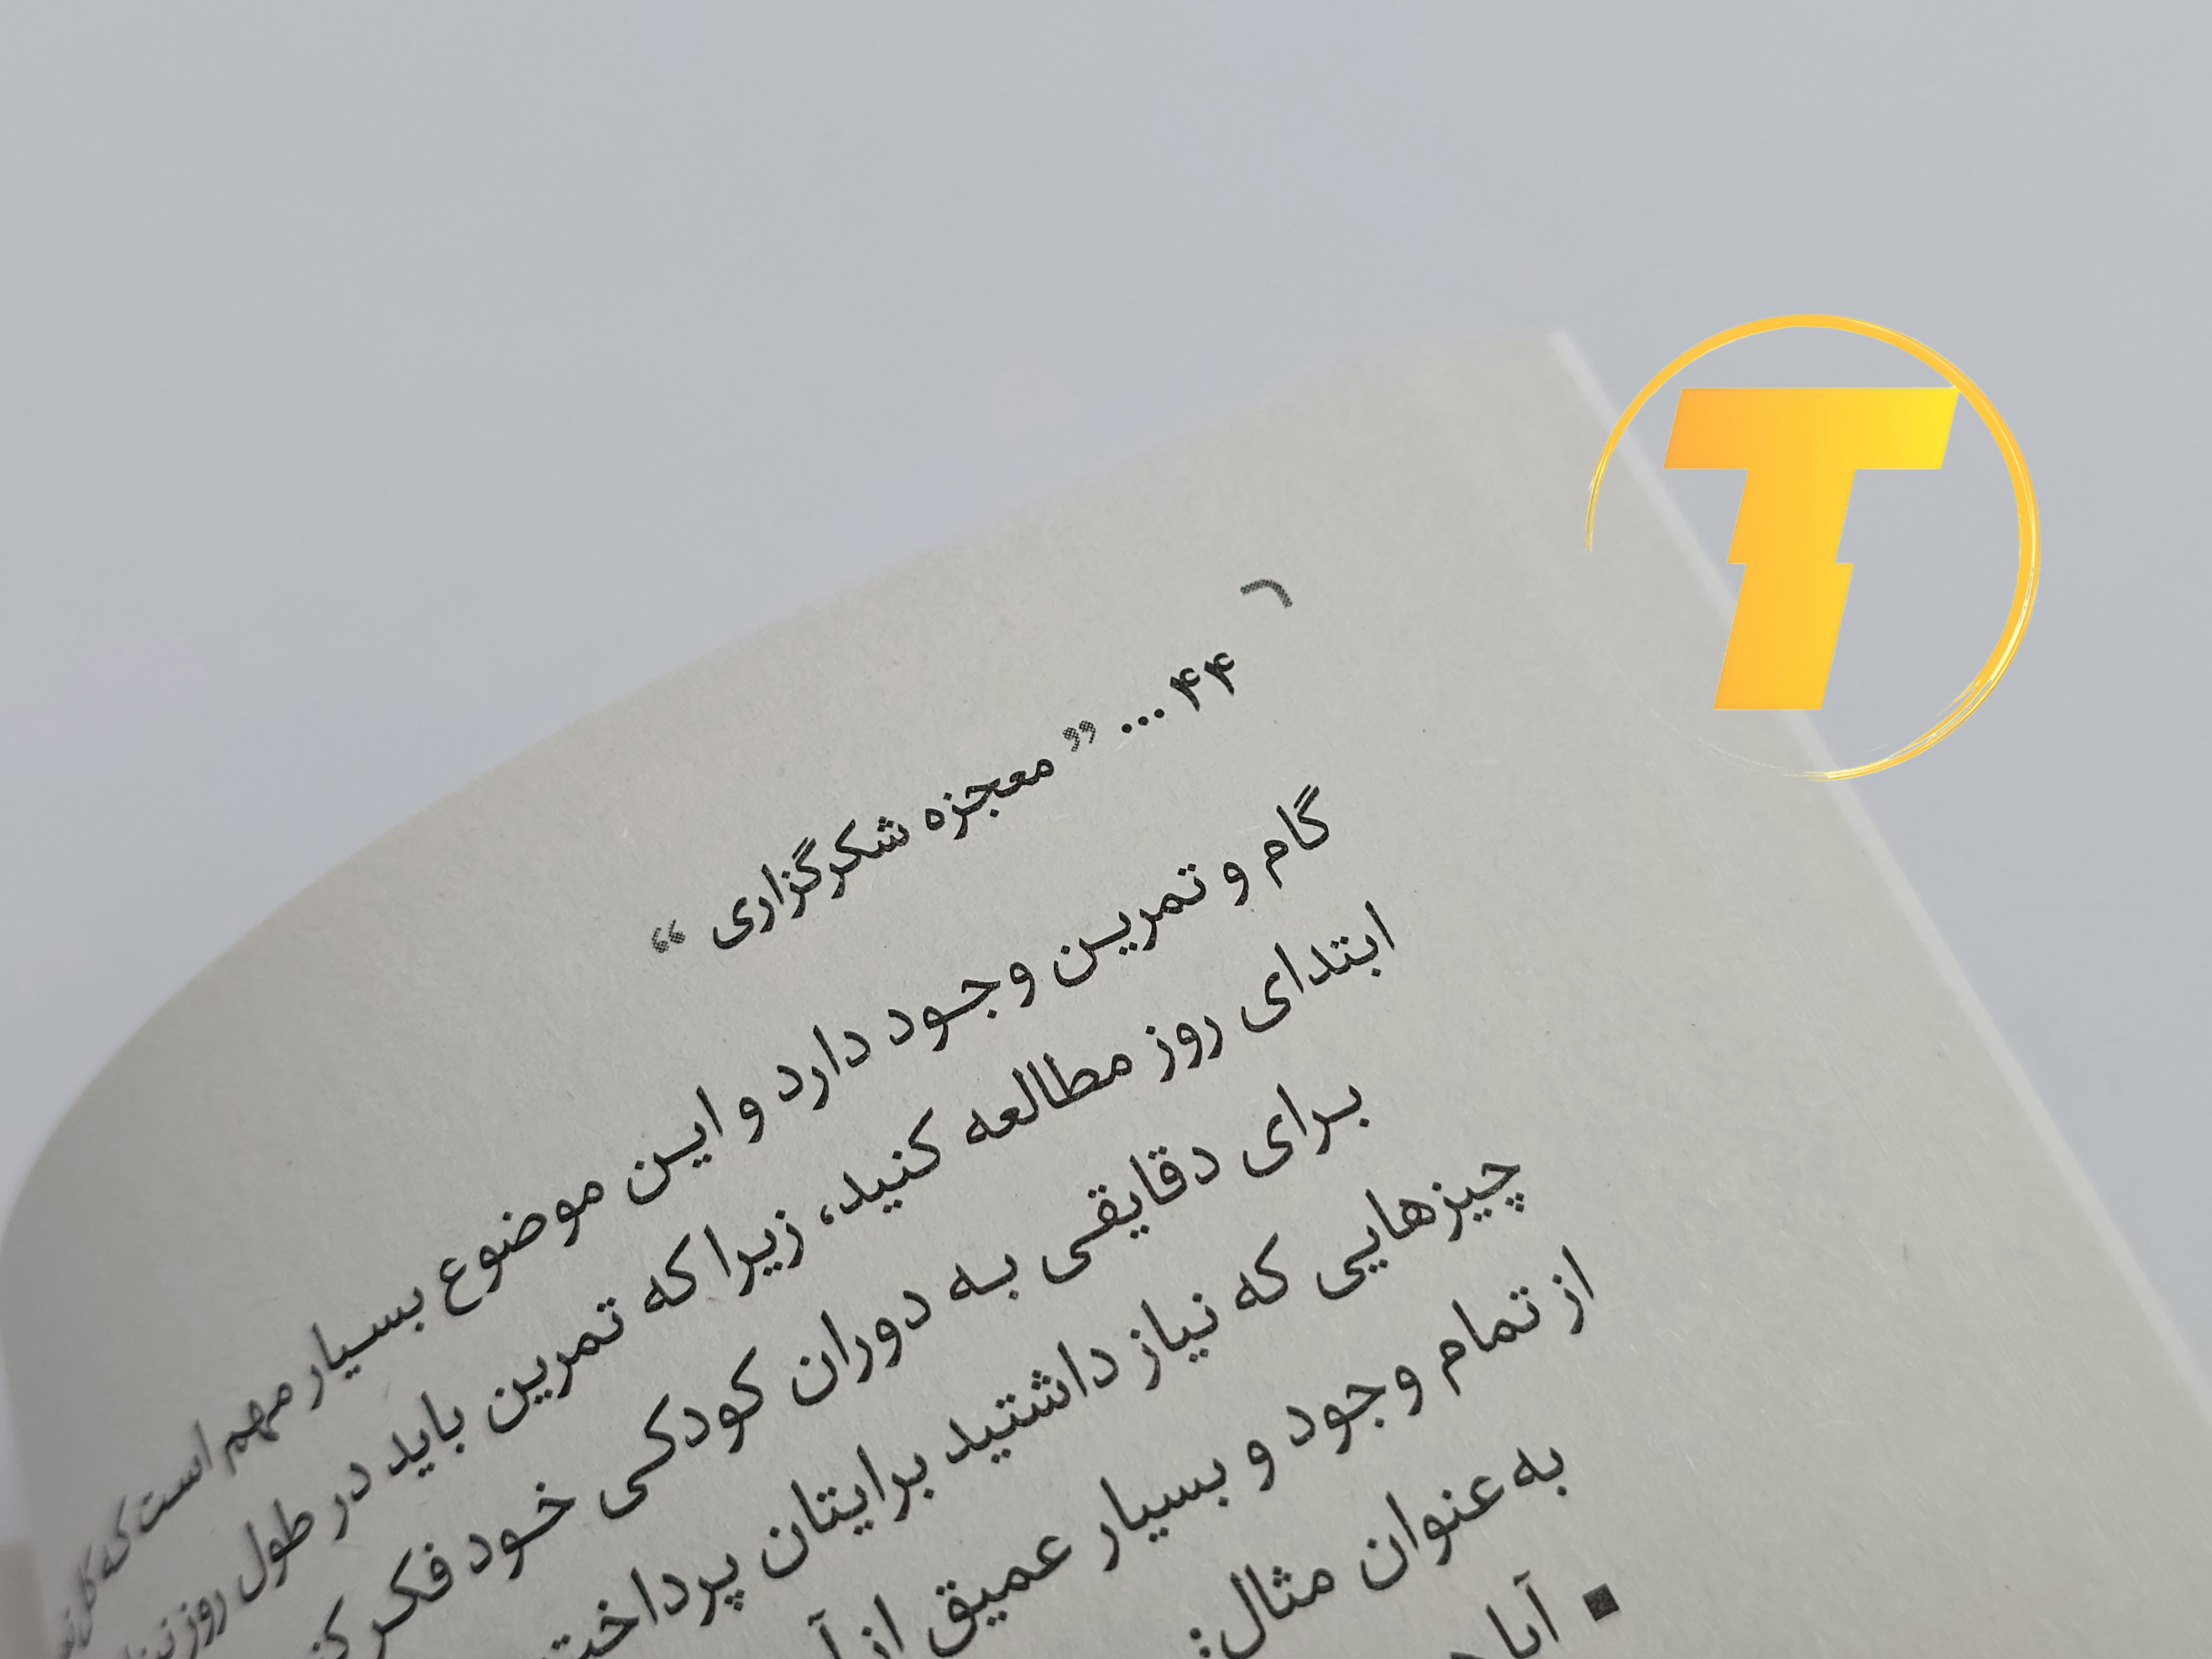 ۴۴ ... ” معجزه شکرگزاری “
گام و تمرین وجود دارد و این موضوع بسیار مهم است که کل
ابتدای روز مطالعه کنید، زیرا که تمرین باید در طول روز
برای دقایقی به دوران کودکی خود فکر
چیزهایی که نیاز داشتید برایتان
از تمام وجود و بسیار عمیق از
به‌عنوان مثال:
▪ آیا
T